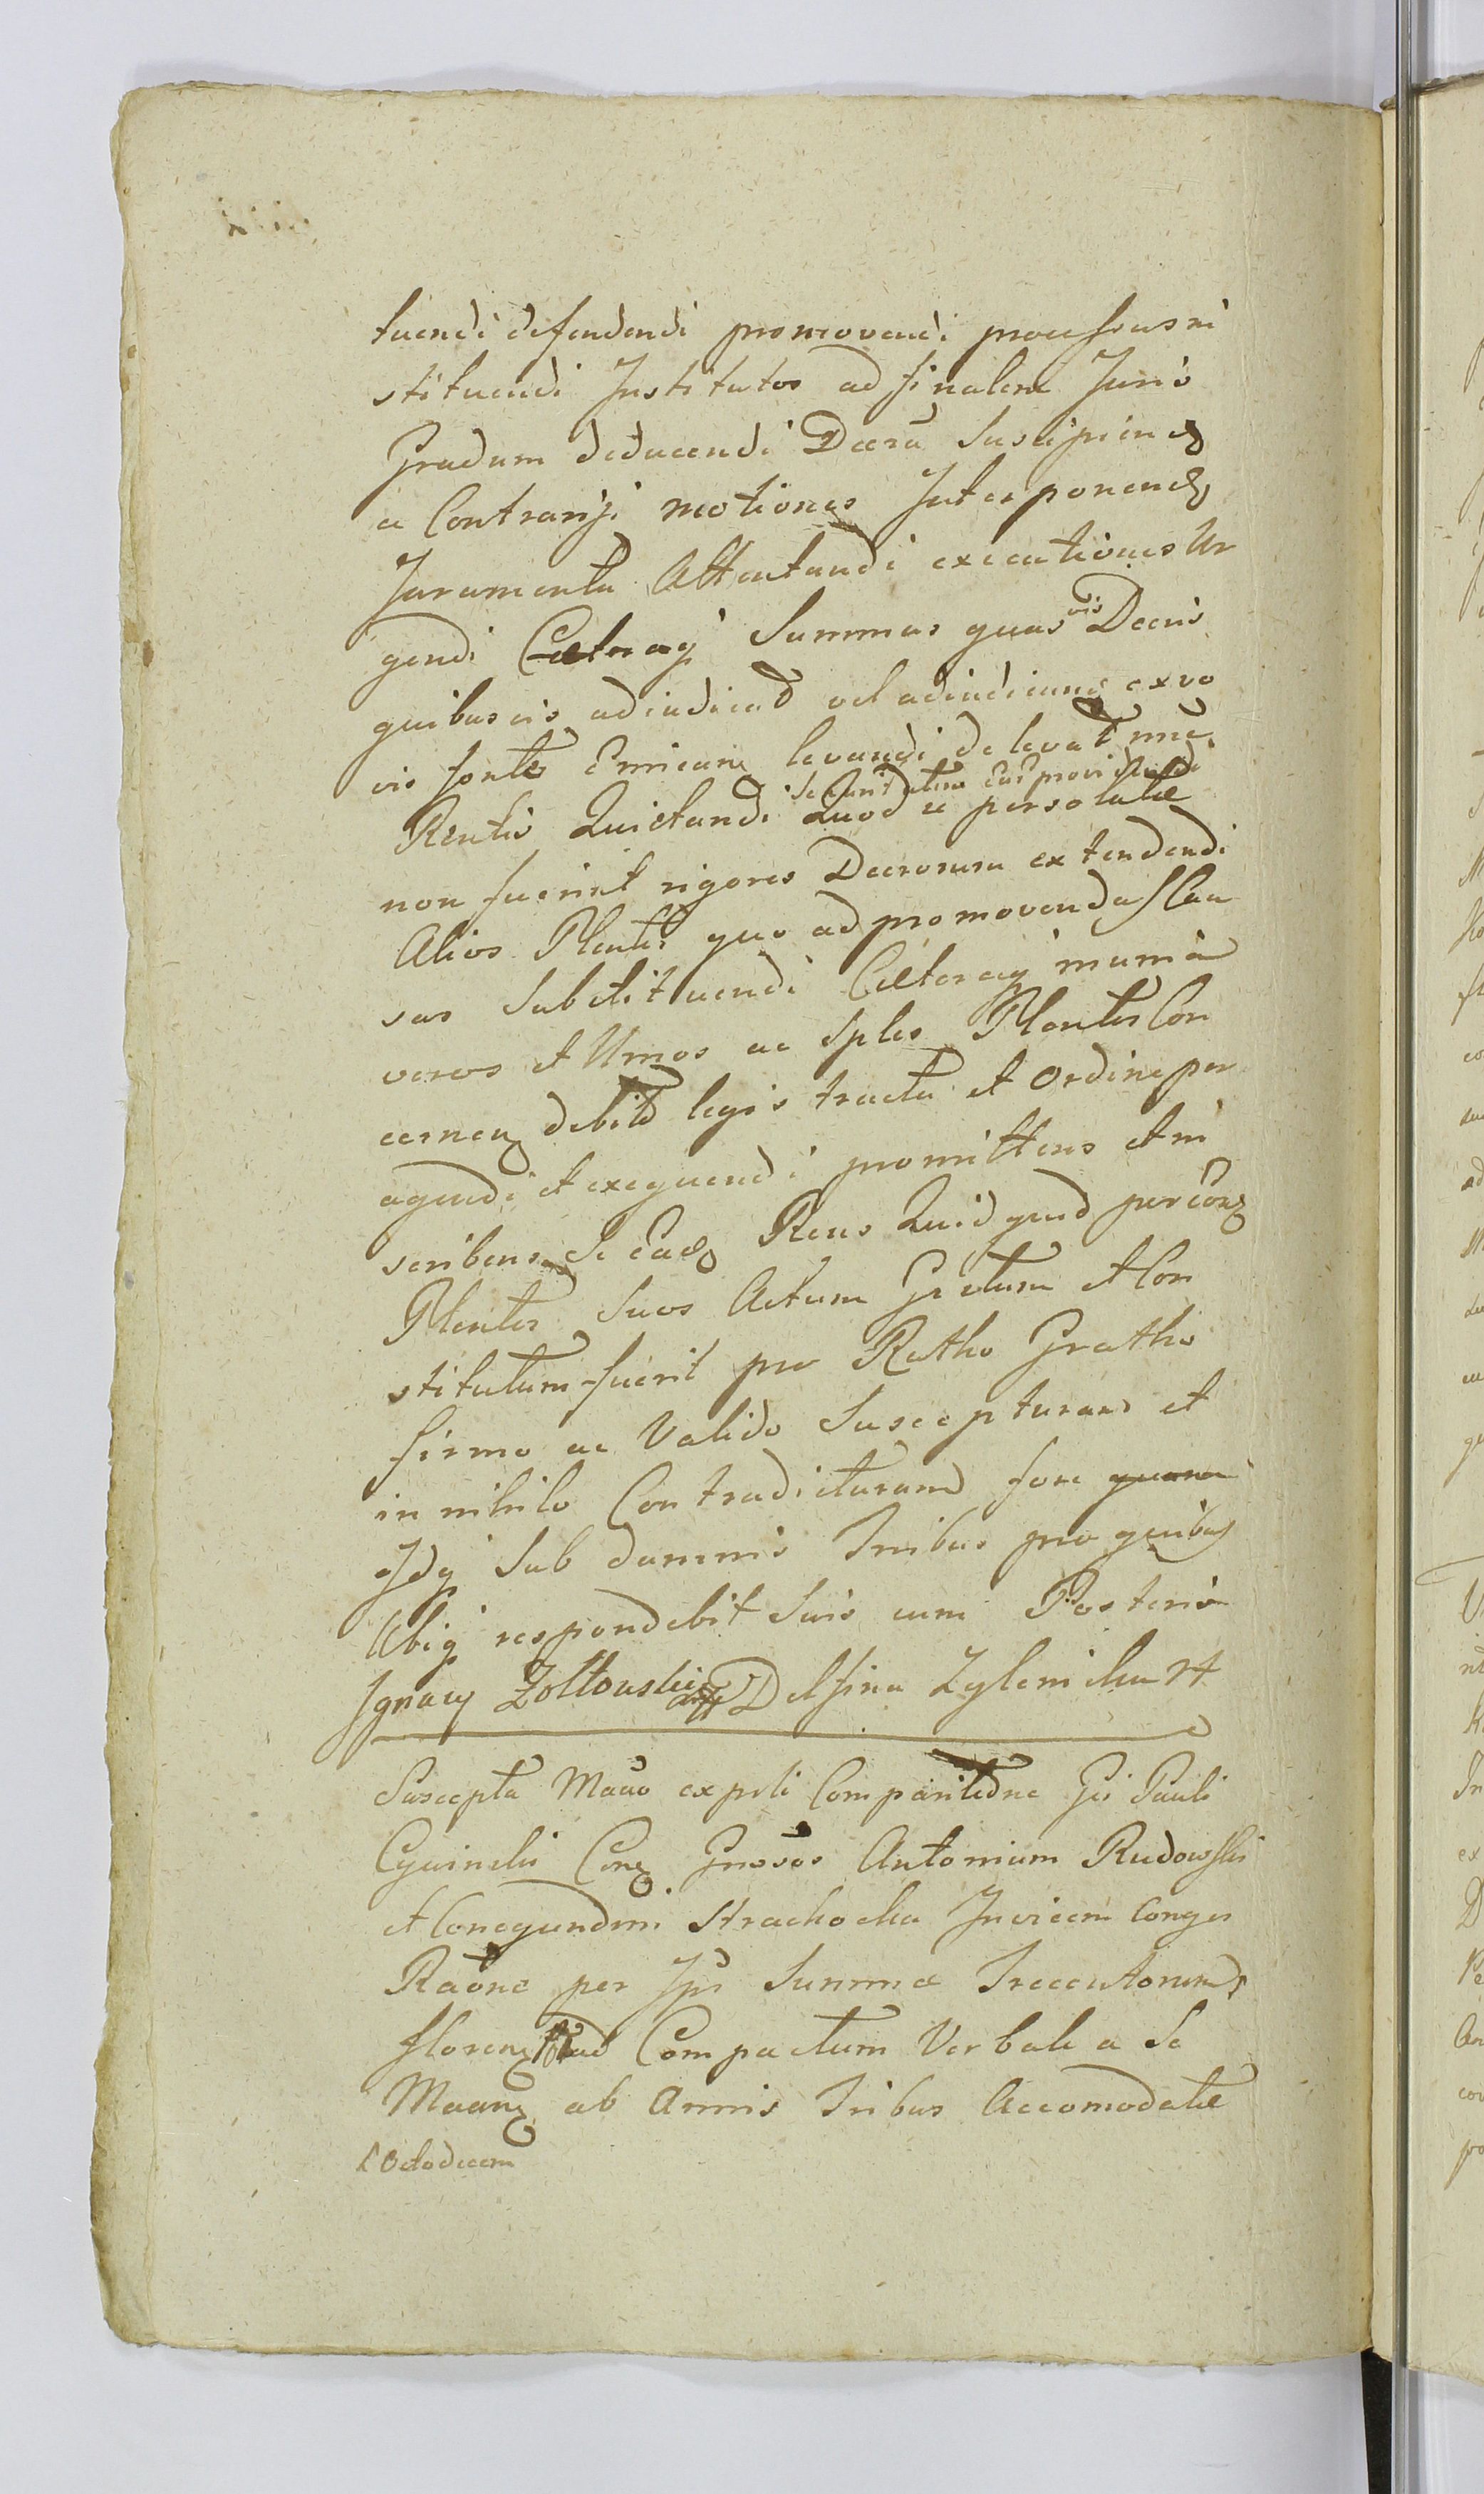 tuendi defendendi promovendi processus ni
stituendi Institutos ad finalem Juris
Gradum deducendi Decra Suscipien
a Contrariji motiones Interponen
Juramenta Attentandi executiones Ur
gendi Caeteraq Summas quasvis Decris
quibusvis adiudicad vel adiudican exvo
vis fonte Emican levandi de levat
Rentis Quietandi Quod si persolutae
non fuerint rigores Decrorum extendendi
Alios Plentes quo ad promovendas Cau
sas Substituendi Caeteraq munia
veros et Umos ac Sples Plentes Con
cernen debito legis tractu et Ordine per
agendi et exequendi promittens et ni
scribens Se Eade Rens Quidquid per eosd
Plentes Suos Actum Gestum et Con
stitutum fuerit pro Ratho Gratho
firmo ac Valido Suscepturam et
in nihilo Contradicturam fore
Idq Sub damnis Tribus pro quibus
Ubiq respondebit Suis cum Posteris
Ignacy Zołtouski Delfina Zylenicka
Suscepta Mano expsti Comparitione Gi Pauli
Cywinski Con Gnosos Antonium Rudowski
et Conegundem Strachocka Invicem Conges
Raone per Ips Summae Trecentorum
floren ad Compactum Verbale a Se
Maan ab Annis Tribus Accomodatae
Octodecem